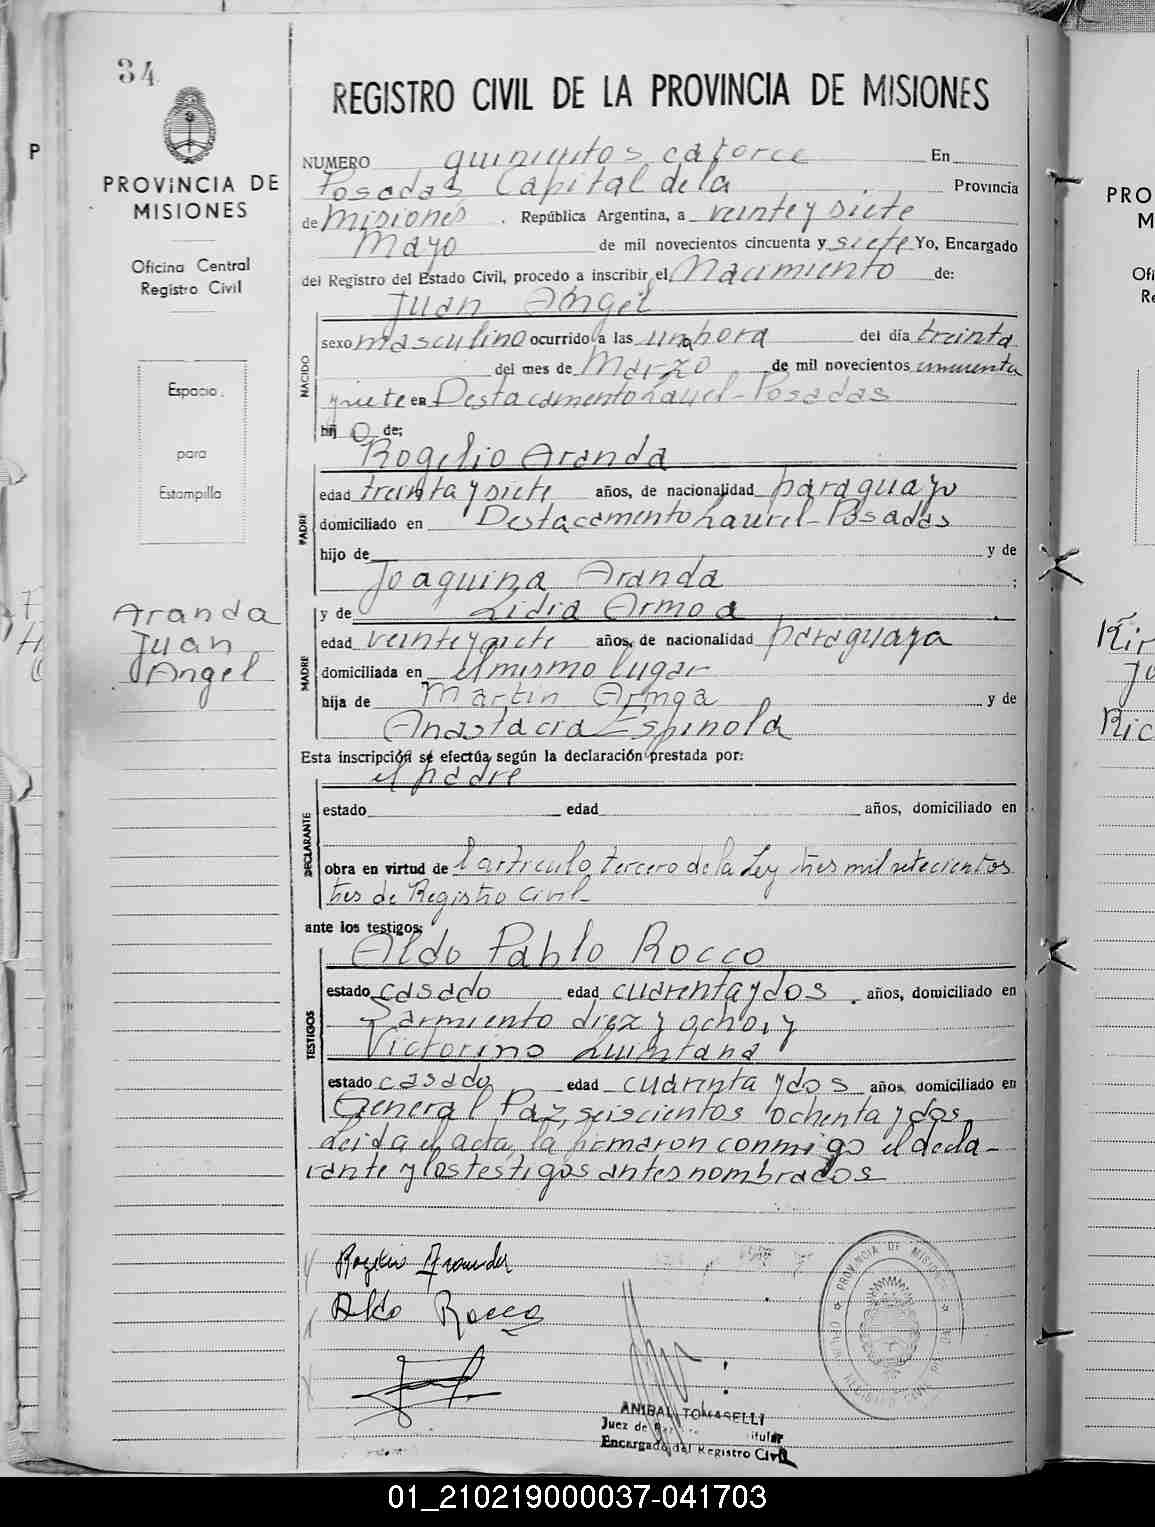 34
PROVINCIA DE
MISIONES
Oficina Central
Registro Civil
Espacio
para
Estampilla
Aranda
Juan
Angel
REGISTRO CIVIL DE LA PROVINCIA DE MISIONES
NUMERO quinientos catorce En
Posadas Capital de la Provincia
de Misiones . República Argentina, a veinte y siete
Mayo de mil novecientos cincuenta y siete Yo, Encargado
del Registro del Estado Civil, procedo a inscribir el Nacimiento de:
Juan Angel
NACIDO
sexo masculino ocurrido a las una hora del día treinta
del mes de Marzo de mil novecientos cincuenta
y siete en Destacamento Laurel - Posadas
hij o de;
Rogelio Aranda
PADRE
edad treinta y siete años, de nacionalidad paraguayo
domiciliado en Destacamento Laurel - Posadas
hijo de y de
Joaquina Aranda ;
y de Lidia Armoa
MADRE
edad veinte y siete años, de nacionalidad paraguaya
domiciliada en el mismo lugar
hija de Martin Armoa y de
Anastacia Espinola
Esta inscripción se efectúa según la declaración prestada por:
el padre
DECLARANTE
estado edad años, domiciliado en
obra en virtud de l articulo tercero de la Ley tres mil setecientos
tres de Registro Civil-
ante los testigos:
Aldo Pablo Rocco
TESTIGOS
estado casado edad cuarenta y dos . años, domiciliado en
Sarmiento diez y ocho, y
Victorino Quintana
estado casado edad cuarenta y dos años, domiciliado en
General Paz, seiscientos ochenta y dos
Leida el acta, la firmaron conmigo el decla-
rante y los testigos antes nombrados
Rogelio Aranda
Aldo Rocco
PROVINCIA DE MISIONES
ANIBAL TOMASELLI
Juez de
Encargado del Registro Civil
P
PRO
M
Ofi
Re
Ric
01_210219000037-041703